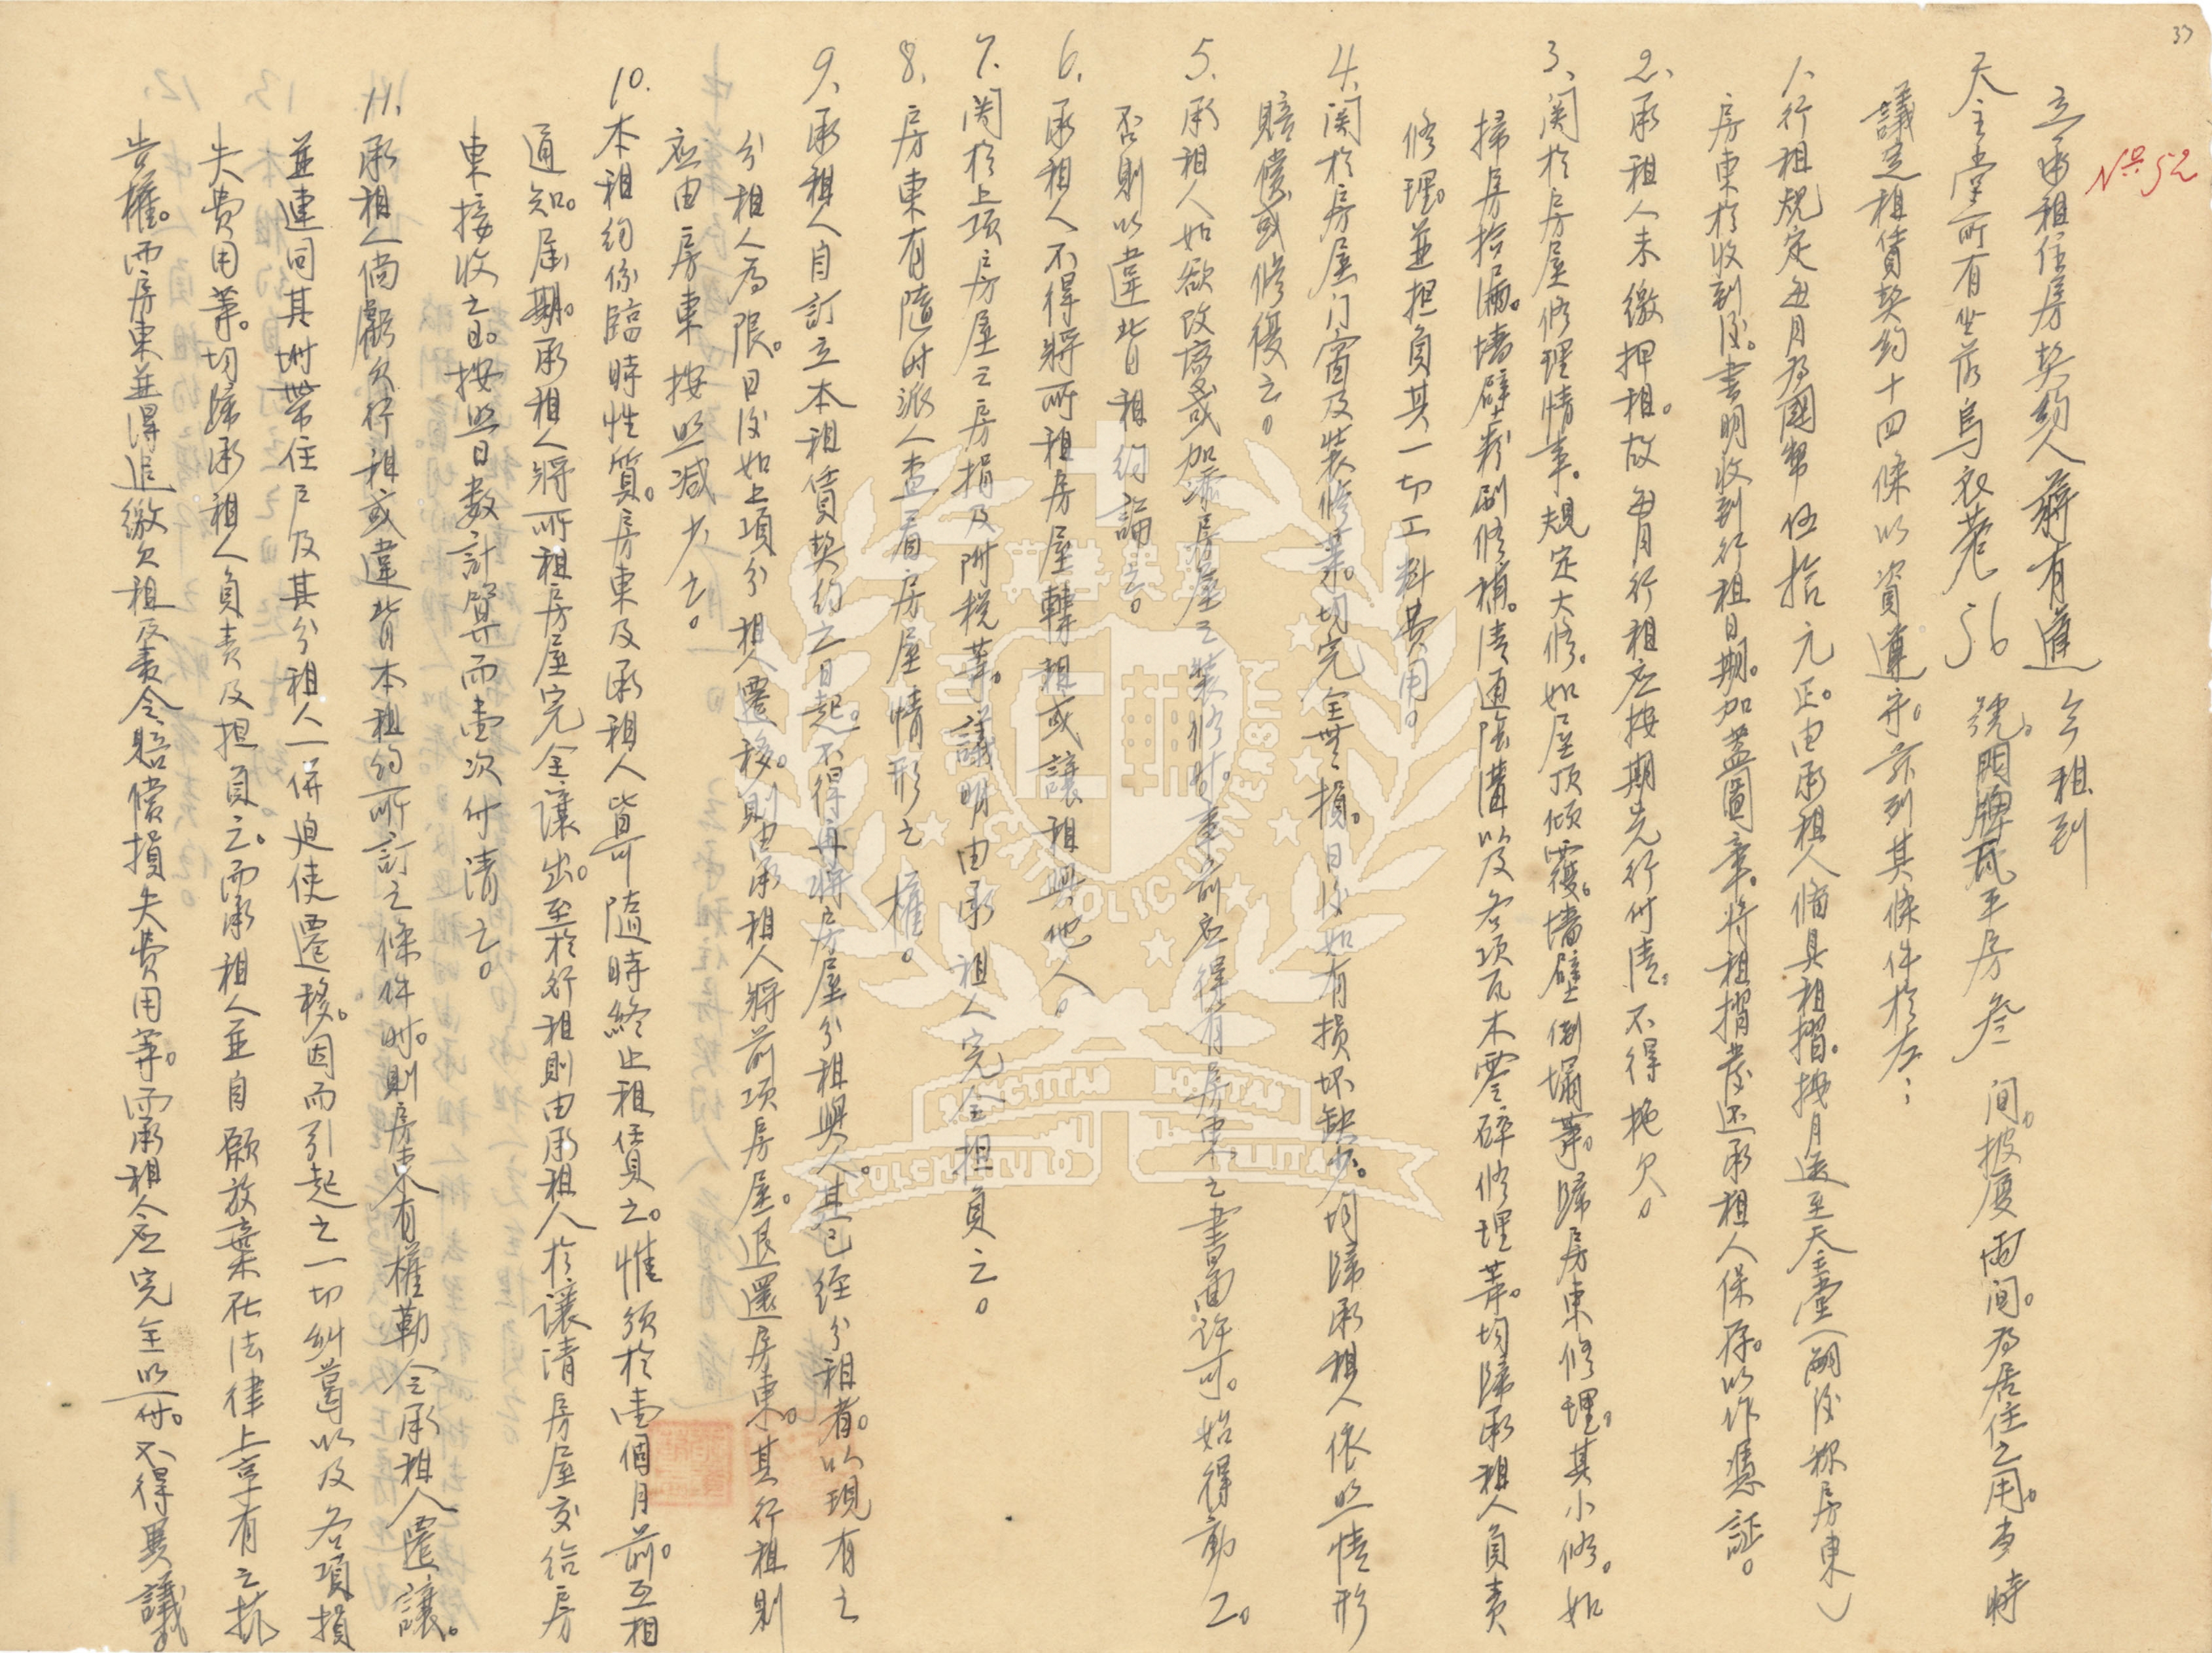 37
No. 52
立承租住房契約人蔣有道今租到
天主堂所有坐落烏衣巷56號。門牌瓦平房叁間。披廈兩間。為居住之用。當時
議定租賃契約十四條以資遵守。茲列其條件於左：
1、行租規定每月為國幣伍拾元正。由承租人備具租摺。按月送至天主堂（嗣後稱房東）
房東於收到後。書明收到行租日期。加蓋圖章。將租摺發還承租人保存。以作憑証。
2、承租人未繳押租。故每月行租应按期先行付清。不得拖欠。
3、関於房屋修理情事。規定大修。如屋頂傾覆。墻壁倒塌等。歸房東修理。其小修。如
掃房拾漏。墻壁粉刷修補。清通陰溝以及各項瓦木零碎修理等。均歸承租人負責
修理。並担負其一切工料費用。
4、関於房屋门窗及裝修業。均完全無損。日後如有損坏缺少。均歸承租人依照情形
賠償或修復之。
5、承租人如欲改變或加添房屋之裝修時。事前应得有房東之書面许可。始得動工。
否則以違背租約論。
6、承租人不得將所租房屋轉租或讓租與他人。
7、関於上項房屋之房捐及附税等。議明由承租人完全担負之。
8、房東有隨时派人查看房屋情形之權。
9、承租人自訂立本租賃契約之日起。不得再將房屋分租與人。其已经分租者。以現有之
分租人為限。日後如上項分租人遷移。則由承租人將前項房屋。退還房東。其行租則
应由房東按照減少之。
10.本租約係臨時性質。房東及承租人皆可隨時終止租賃之。惟須於壹個月前。互相
通知。屆期。承租人將所租房屋完全讓出。至於行租則由承租人於讓清房屋交给房
東接收之日。按照日數計算而壹次付清之。
11.承租人倘虧欠行租或違背本租約所訂之條件时。則房東有權勒令承租人遷讓。
並連同其坿帶住户及其分租人一併迫使遷移。因而引起之一切糾葛以及各項損
失費用等。均歸承租人負责及担負之。而承租人並自願放棄在法律上享有之抗
告權。而房東並得追繳欠租及責令賠償損失費用等。而承租人应完全照付。不得異議。